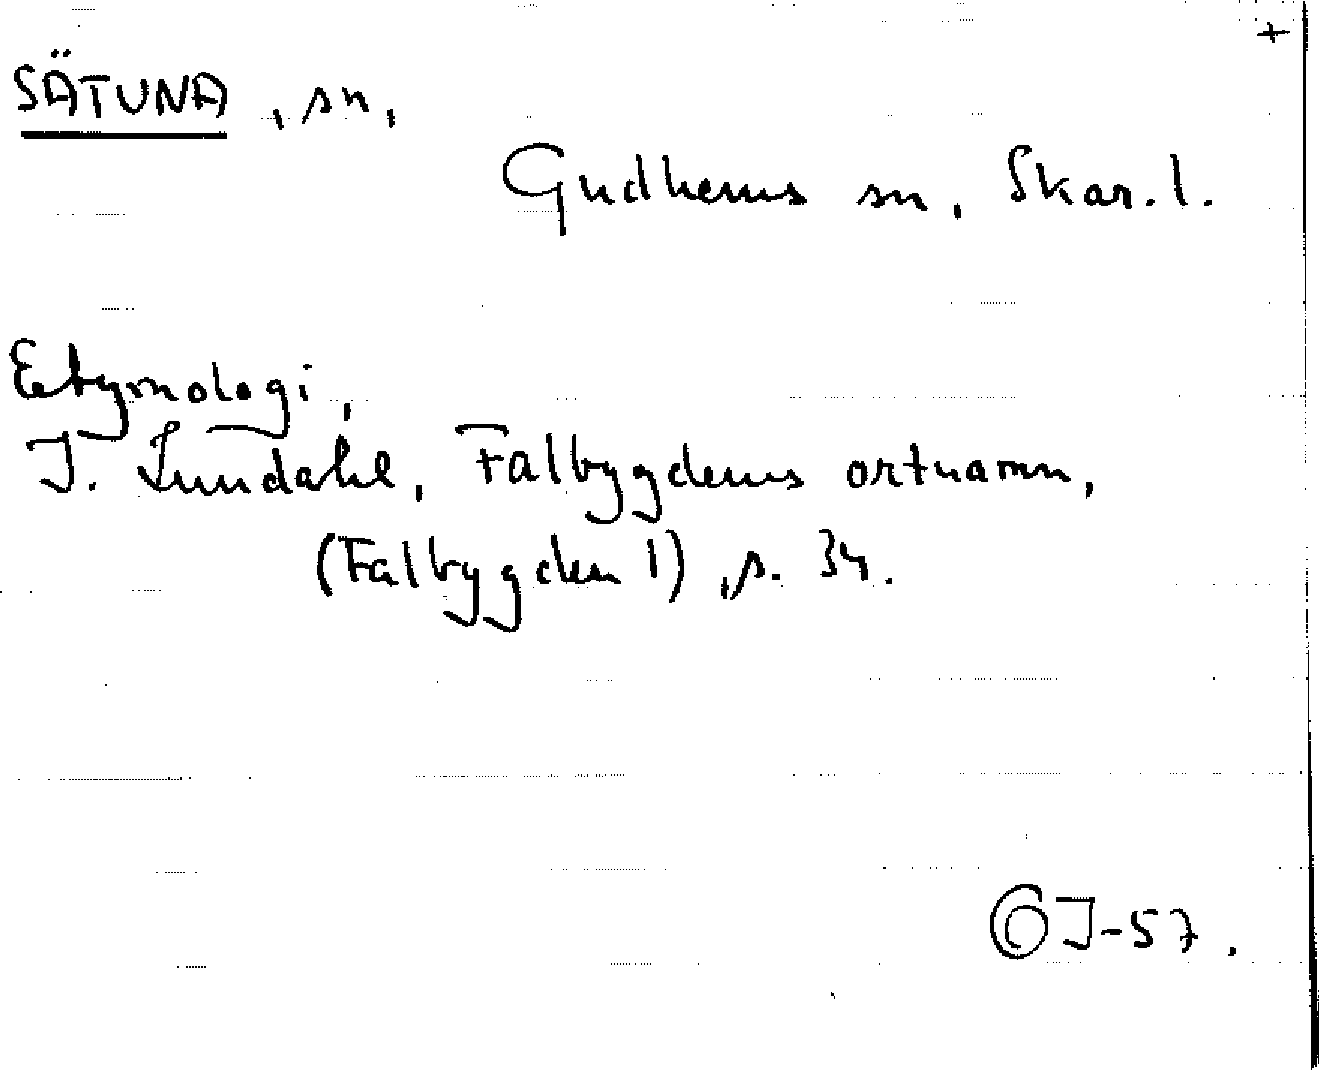 +
SÄTUNA, sn,
Gudhems sn, Skar. l.
Etymologi,
I. Lundahl, Falbygdens ortnamn,
(Falbygden 1), s. 34.
GJ-57.